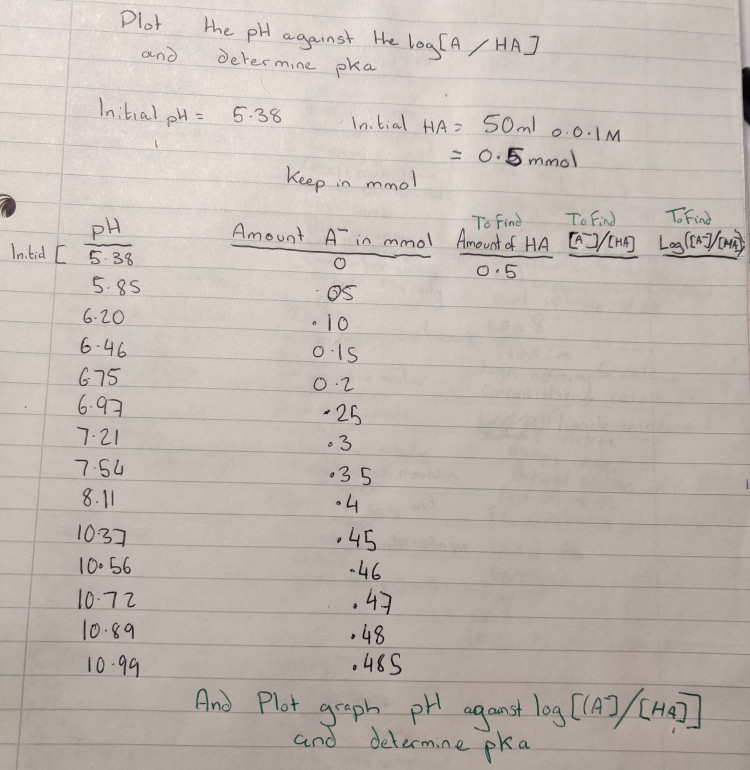 Plot the pH against the log[A / HA]
and determine pka
Initial pH = 5.38 Initial HA = 50ml 0.0.1M
= 0.5 mmol
Keep in mmol
To Find To Find To Find
pH Amount A⁻ in mmol Amount of HA [A⁻]/[HA] Log([A⁻]/[HA])
Initial [ 5.38 0 0.5
5.85 .05
6.20 .10
6.46 0.15
6.75 0.2
6.97 .25
7.21 .3
7.54 .35
8.11 .4
10.37 .45
10.56 .46
10.72 .47
10.89 .48
10.99 .485
And Plot graph pH against log[(A⁻]/[HA]]
and determine pka